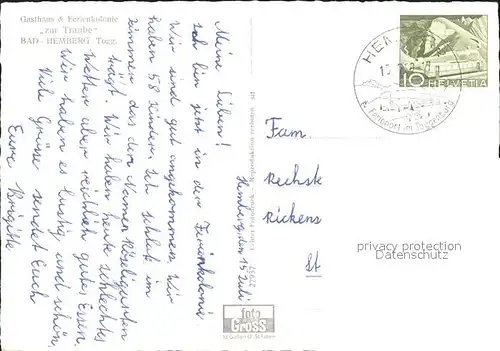 Gasthaus & Ferienkolonie
„zur Traube“
BAD - HEMBERG Togg.
Hemberg, den 15 Juli
Meine Lieben!
Ich bin jetzt in der Ferienkolonie.
Wir sind gut angekommen, wir
haben 58 Kinder. Ich schlief im
Zimmer das den Namen Rösligarten
trägt. Wir haben heute schlechtes
Wetter aber reichlich gutes Essen.
Wir haben es lustig und schön.
Viele Grüsse sendet Euch
Eure Brigitte
foto
Gross
St. Gallen
HELVETIA
10
HEM
Ferienort im Toggenburg
Fam.
Rechste
Rickens
St
privacy protection
Datenschutz